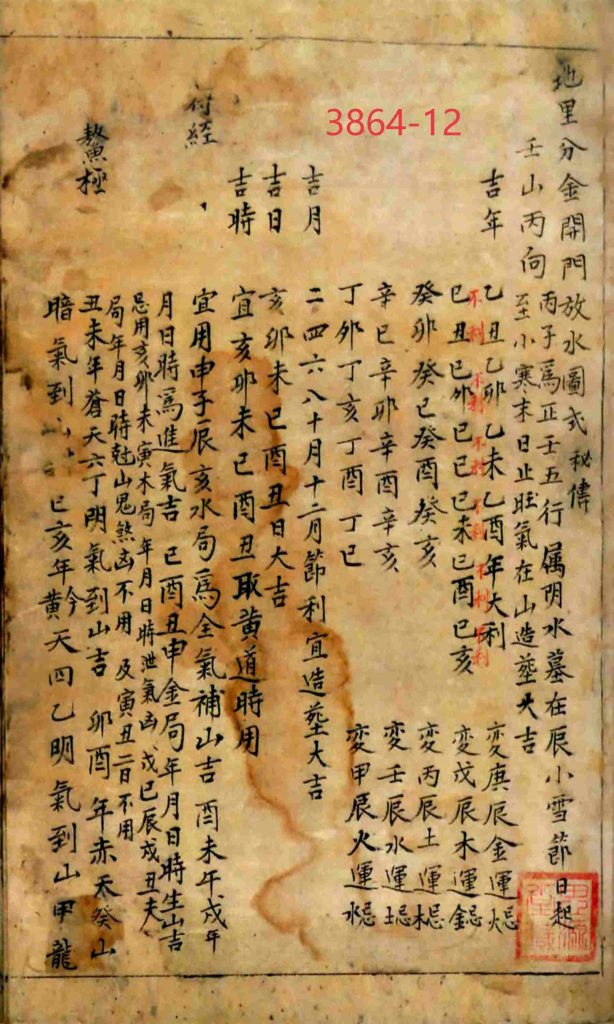 3864-12
地里分金開門放水圖式秘傳
壬山丙向
丙子為正壬五行屬明水墓在辰小雪節日起
至小寒末日止旺氣在山造塟大吉
吉年
乙丑乙卯乙未乙酉年大利 变庚辰金運忌火
不利 不利 不利 不利 不利 不利
己丑己卯己巳己未己酉己亥 变戊辰木運忌金
癸卯癸巳癸酉癸亥 变丙辰土運忌木
辛巳辛卯辛酉辛亥 变壬辰水運忌土
丁卯丁亥丁酉丁巳 变甲辰火運忌水
吉月 二四六八十月十二月節利宜造塟大吉
吉日 亥卯未巳酉丑日大吉
吉時 宜亥卯未巳酉丑取黄道時用
付経
宜用申子辰亥水局為全氣補山吉 酉未午戌年
月日時為進氣吉 巳酉丑申金局年月日時生山吉
忌用亥卯未寅木局年月日時泄氣凶 戊己辰戌丑未
局年月日時尅山鬼煞凶不用 及寅丑二日不用
鰲極
丑未年蒼天六丁明氣到山吉 卯酉年赤天癸山
暗氣到山 巳亥年黄天四乙明氣到山甲龍
今